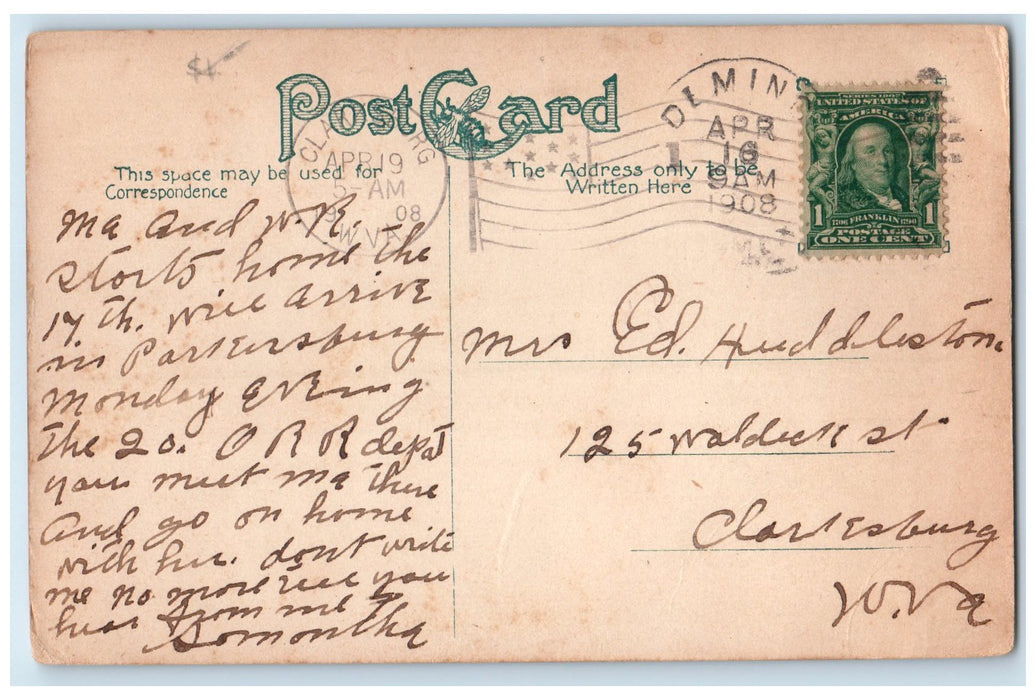 $1
Post Card
This space may be used for
Correspondence
The Address only to be
Written Here
CLARKSBURG
APR 19
5-AM
19 08
W.VA.
DEMING
APR
16
9 AM
1908
1
SERIES 1902
UNITED STATES OF
AMERICA
1706 FRANKLIN 1790
1 1
POSTAGE
ONE CENT
Ma and W.R.
starts home the
17 th. will arrive
in Parkersburg
Monday Evening
the 20. O R R depot
you meet ma there
and go on home
with her. dont write
me no more till you
hear from me
Somontha
Mrs Ed. Hueddleston.
125 Waldeck st
Clarksburg
W.Va